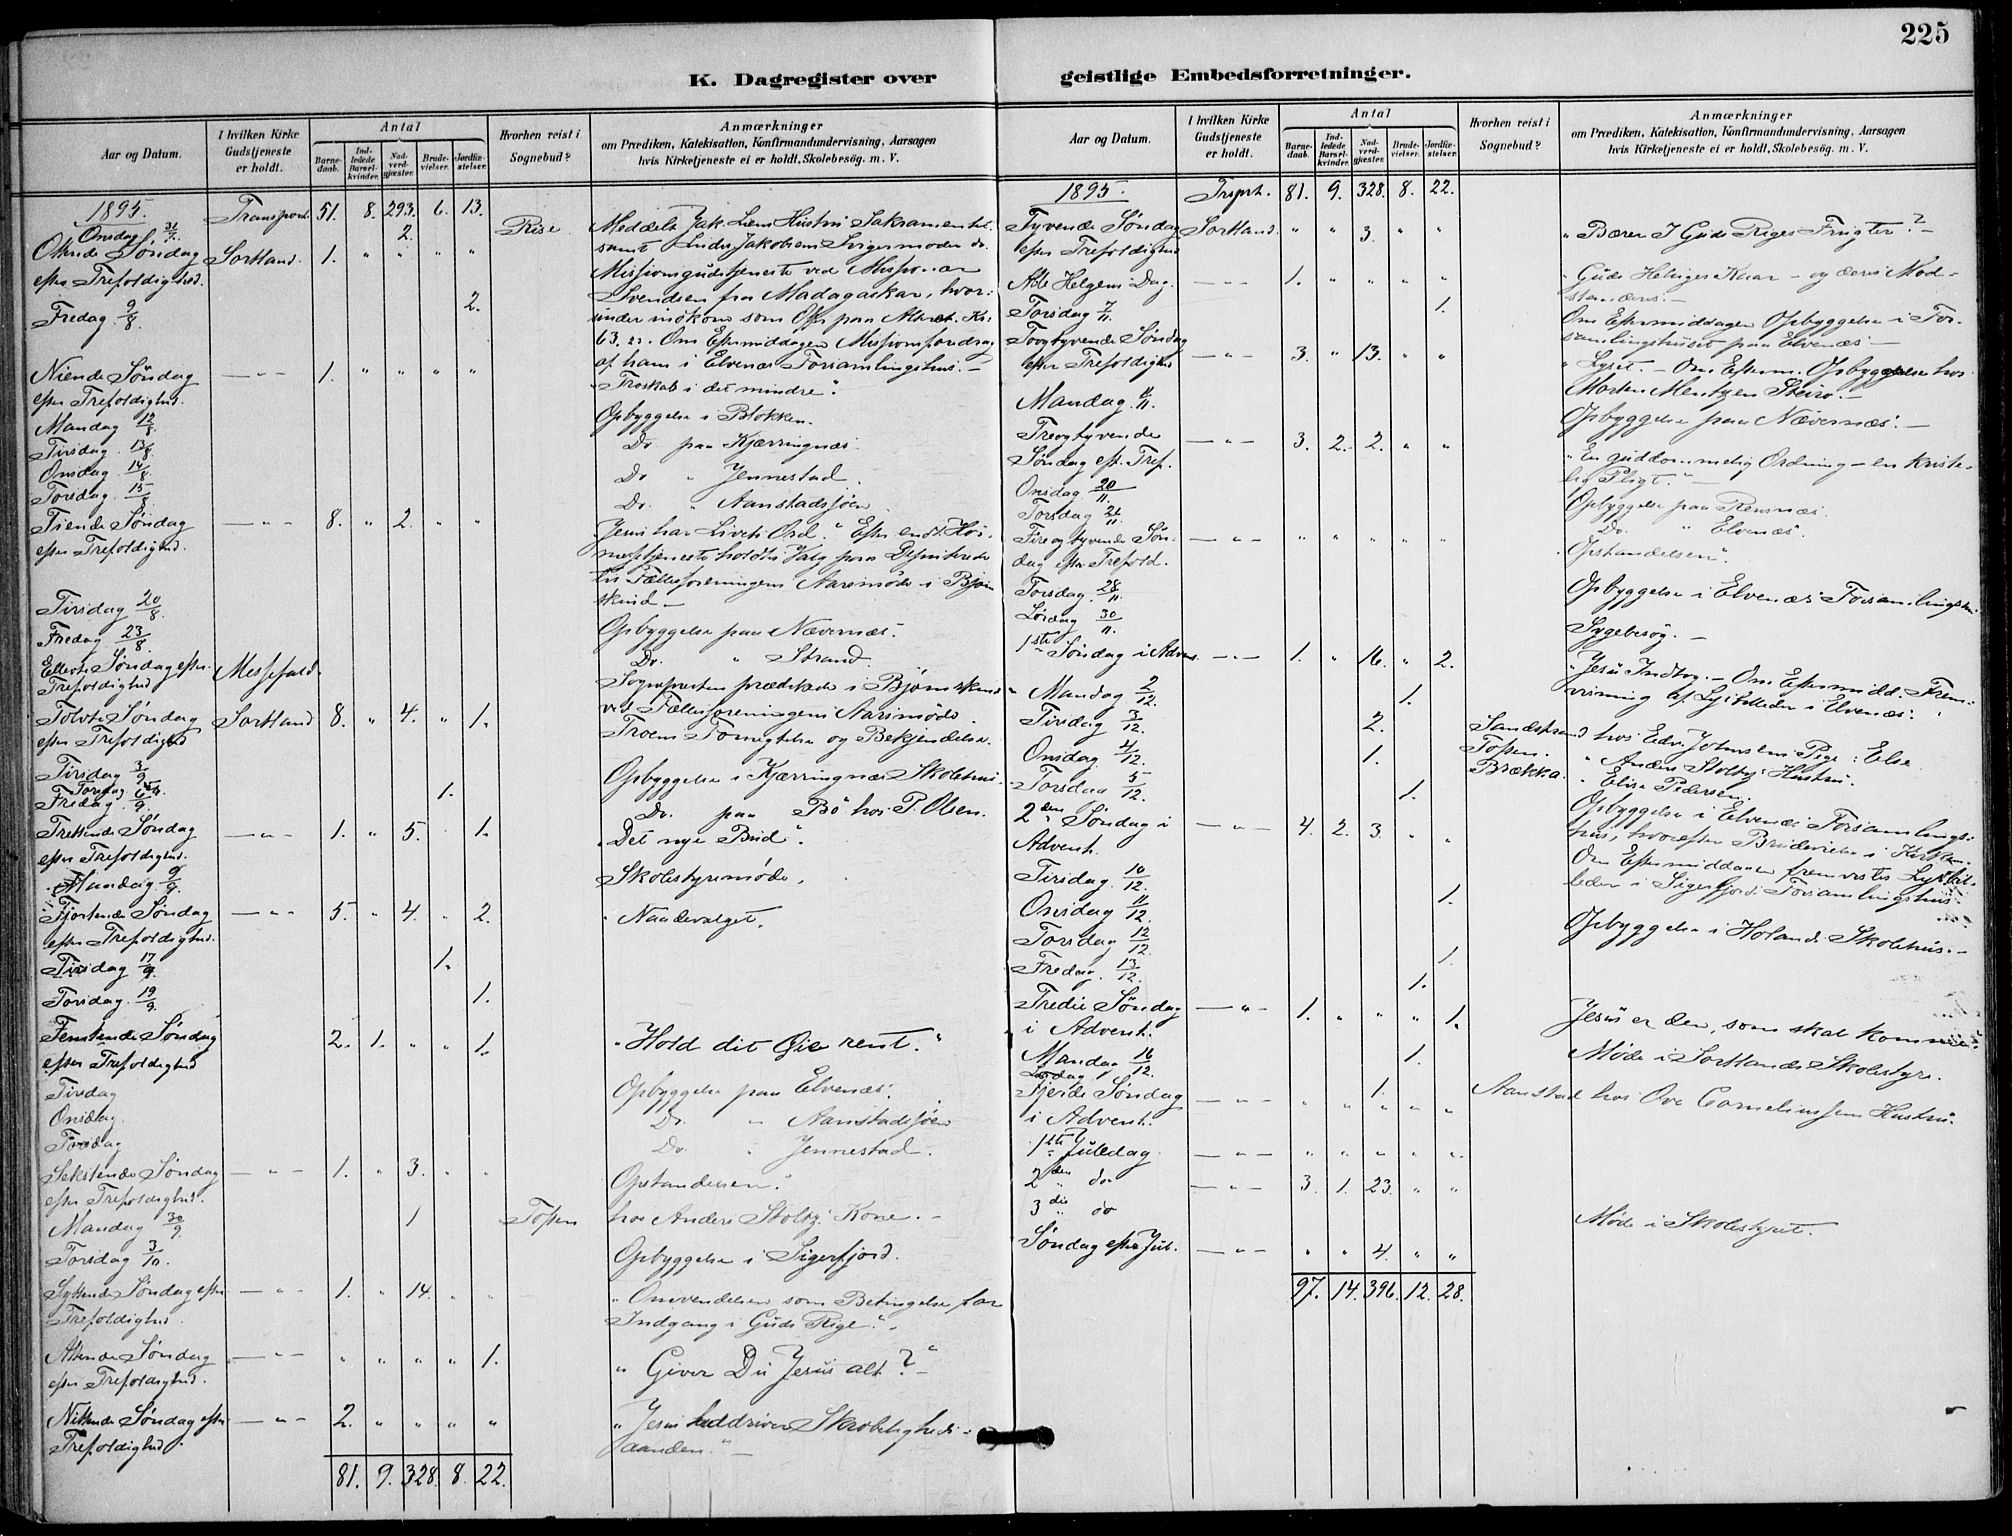 225
K. Dagregister over
Aar og Datum.
I hvilken Kirke Gudstjeneste er holdt.
Antal
Barnedaab.
Indledede Barselkvinder.
Nadverdgjæster.
Brudevielser.
Jordfæstelser.
Hvorhen reist i Sognebud?
Anmærkninger
om Prædiken, Katekisation, Konfirmandundervisning, Aarsagen
hvis Kirketjeneste ei er holdt, Skolebesög. m. V.
1895. Transport. 51. 8. 293. 6. 13.
Onsdag 31/7. 2. Rise. Meddelt Jak. Liens Hustru Sakramentet
Ottende Søndag Sortland. 1. " " " " samt Jakobsens Svigermoder do.
efter Trefoldighed. Missionsgudstjeneste ved Missionær
2. Svendsen fra Madagaskar, hvor-
Fredag 9/8. under indkom som Offer paa Alteret Kr.
63. Om Eftermiddagen Missionsforedrag
Niende Søndag — " — 1. " " " " af ham i Elvenæs Forsamlingshus. —
efter Trefoldighed. "Troskab i det mindre".
Mandag 12/8. Opbyggelse i Blokken.
Tirsdag 13/8. Do. paa Kjærringnæs.
Onsdag 14/8. Do. " Jennestad.
Torsdag 15/8. Do. " Aanstadsjøen.
Tiende Søndag — " — 8. " 2. " " "Jesus har Livets Ord." Efter endt Høi-
efter Trefoldighed. messetjeneste holdtes Valg paa Deputerede
til Fællesforeningens Aarsmøde i Bjørn-
skind —
Tirsdag 20/8. Opbyggelse paa Nævernæs.
Fredag 23/8. Do. " Strand.
Ellevte Søndag efter Trefoldighed Messefald. Sognepresten prædikede i Bjørnskind
Tolvte Søndag Sortland 8. " 4. " 1. ved Fællesforeningens Aarsmøde.
efter Trefoldighed Troens Fornegtelse og Bekjendelse.
Tirsdag 3/9. Opbyggelse i Kjærringnæs Skolehus.
Torsdag
Fredag 6/9. 1. Do. paa Bø hos P. Olsen.
Trettende Søndag — " — 1. " 5. 1. "Det nye Bud".
efter Trefoldighed.
Mandag 9/9. Skolestyremøde.
Fjortende Søndag — " — 5. " 4. " 2. "Naadevalget.
efter Trefoldighed.
Tirsdag 17/9. 1.
Torsdag 19/9. 1.
Femtende Søndag 2. 1. " " 1. "Hold dit Øie rent."
efter Trefoldighed
Tirsdag Opbyggelse paa Elvenæs.
Onsdag. Do. " Aanstadsjøen
Torsdag Do. " Jennestad.
Sekstende Søndag — " — 1. " 3. " " Opstandelsen.
efter Trefoldighed.
Mandag 30/9 1 Tofsen hos Anders Stoltz' Kone. —
Torsdag 3/10. Opbyggelse i Sigerfjord.
Syttende Søndag efter — " — 1. " 14. " " "Omvendelsen som Betingelse for
Trefoldighed. Indgang i Guds Rige."
Attende Søndag — " — " " " " 1. "Giver Du Jesus alt?" —
efter Trefoldighed.
Nittende Søndag efter — " — 2. " " " " "Jesus uddriver Skrøbeligheds-
Trefoldighed. aanden." —
81. 9. 328. 8. 22.
geistlige Embedsforretninger.
Aar og Datum.
I hvilken Kirke Gudstjeneste er holdt.
Antal
Barnedaab.
Indledede Barselkvinder.
Nadvergjæster.
Brudevielser.
Jordfæstelser.
Hvorhen reist i Sognebud?
Anmærkninger
om Prædiken, Katekisation, Konfirmandundervisning, Aarsagen
hvis Kirketjeneste ei er holdt, Skolebesög. m. V.
1895. Trsprt. 81. 9. 328. 8. 22.
Tyvende Søndag Sortland. " " 3. " " "Bærer I Guds Riges Frugter?" —
efter Trefoldighed
Alle Helgens Dag. — " — 1. " " " " "Guds Helliges Kaar — og deres Mod-
standeres. —
Torsdag 7/11. 1. Om Eftermiddagen Opbyggelse i For-
samlingshuset paa Elvenæs. —
Toogtyvende Søndag — " — 3. " 13. " " "Lyset. — Om Efterm. Opbyggelse hos
efter Trefoldighed Morten Mentzen Steiro. —
Mandag 11/11. Opbyggelse paa Nævernæs. —
Treogtyvende — " — 3. 2. 2. " " "En guddommelig Ordning — en kriste-
Søndag eft. Tref. lig Pligt." —
Onsdag 20/11. Opbyggelse paa Rensnæs.
Torsdag 21/11 Do. " Elvenæs.
Fireogtyvende Søn- — " — " " " " " "Opstandelsen".
dag efter Trefold.
Torsdag 28/11. Opbyggelse i Elvenæs Forsamlingshus
Lørdag 30/11. Sygebesøg. —
1ste Søndag i Advent — " — 1. " 16. " 2. "Jesu Indtog. — Om Eftermidd. Frem-
Mandag 2/12. 1. visning af Lysbilleder i Elvenæs.
Tirsdag 3/12. 2. Sandstrand hos Edv. Johnsens Pige: Else
Onsdag 4/12. 1. Tofsen. " Anders Stoltz' Hustru.
Torsdag 5/12. 1. Brækka. " Elise Pedersen.
Opbyggelse i Elvenæs Forsamlings-
2den Søndag i — " — 4. 2. 3. " " hus, hvorefter Brudevielse i Kirken.
Advent. Om Eftermiddagen fremvistes Lysbil-
Tirsdag 10/12. leder i Sigerfjords Forsamlingshus.
Onsdag 11/12. 1.
Torsdag 12/12. Opbyggelse i Holands Skolehus. —
Fredag 13/12. 1.
1.
Tredie Søndag — " — 1. " " " 1. Jesus er den, som skal komme.
i Advent.
Mandag 16/12. 1. Møde i Sortlands Skolestyre.
Lørdag 1. Aanstad hos Ove Corneliussens Hustru.
Fjerde Søndag — " — " " " " "
i Advent.
1ste Juledag. — " — " " " " "
2den " do — " — 3. 1. 23. " "
3die " do Møde i Skolestyret.
Søndag efter Jul. — " — " " 4. " "
97. 14. 396. 12. 28.